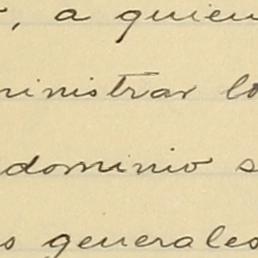 , a quien
ministrar lo
dominio s
s generales